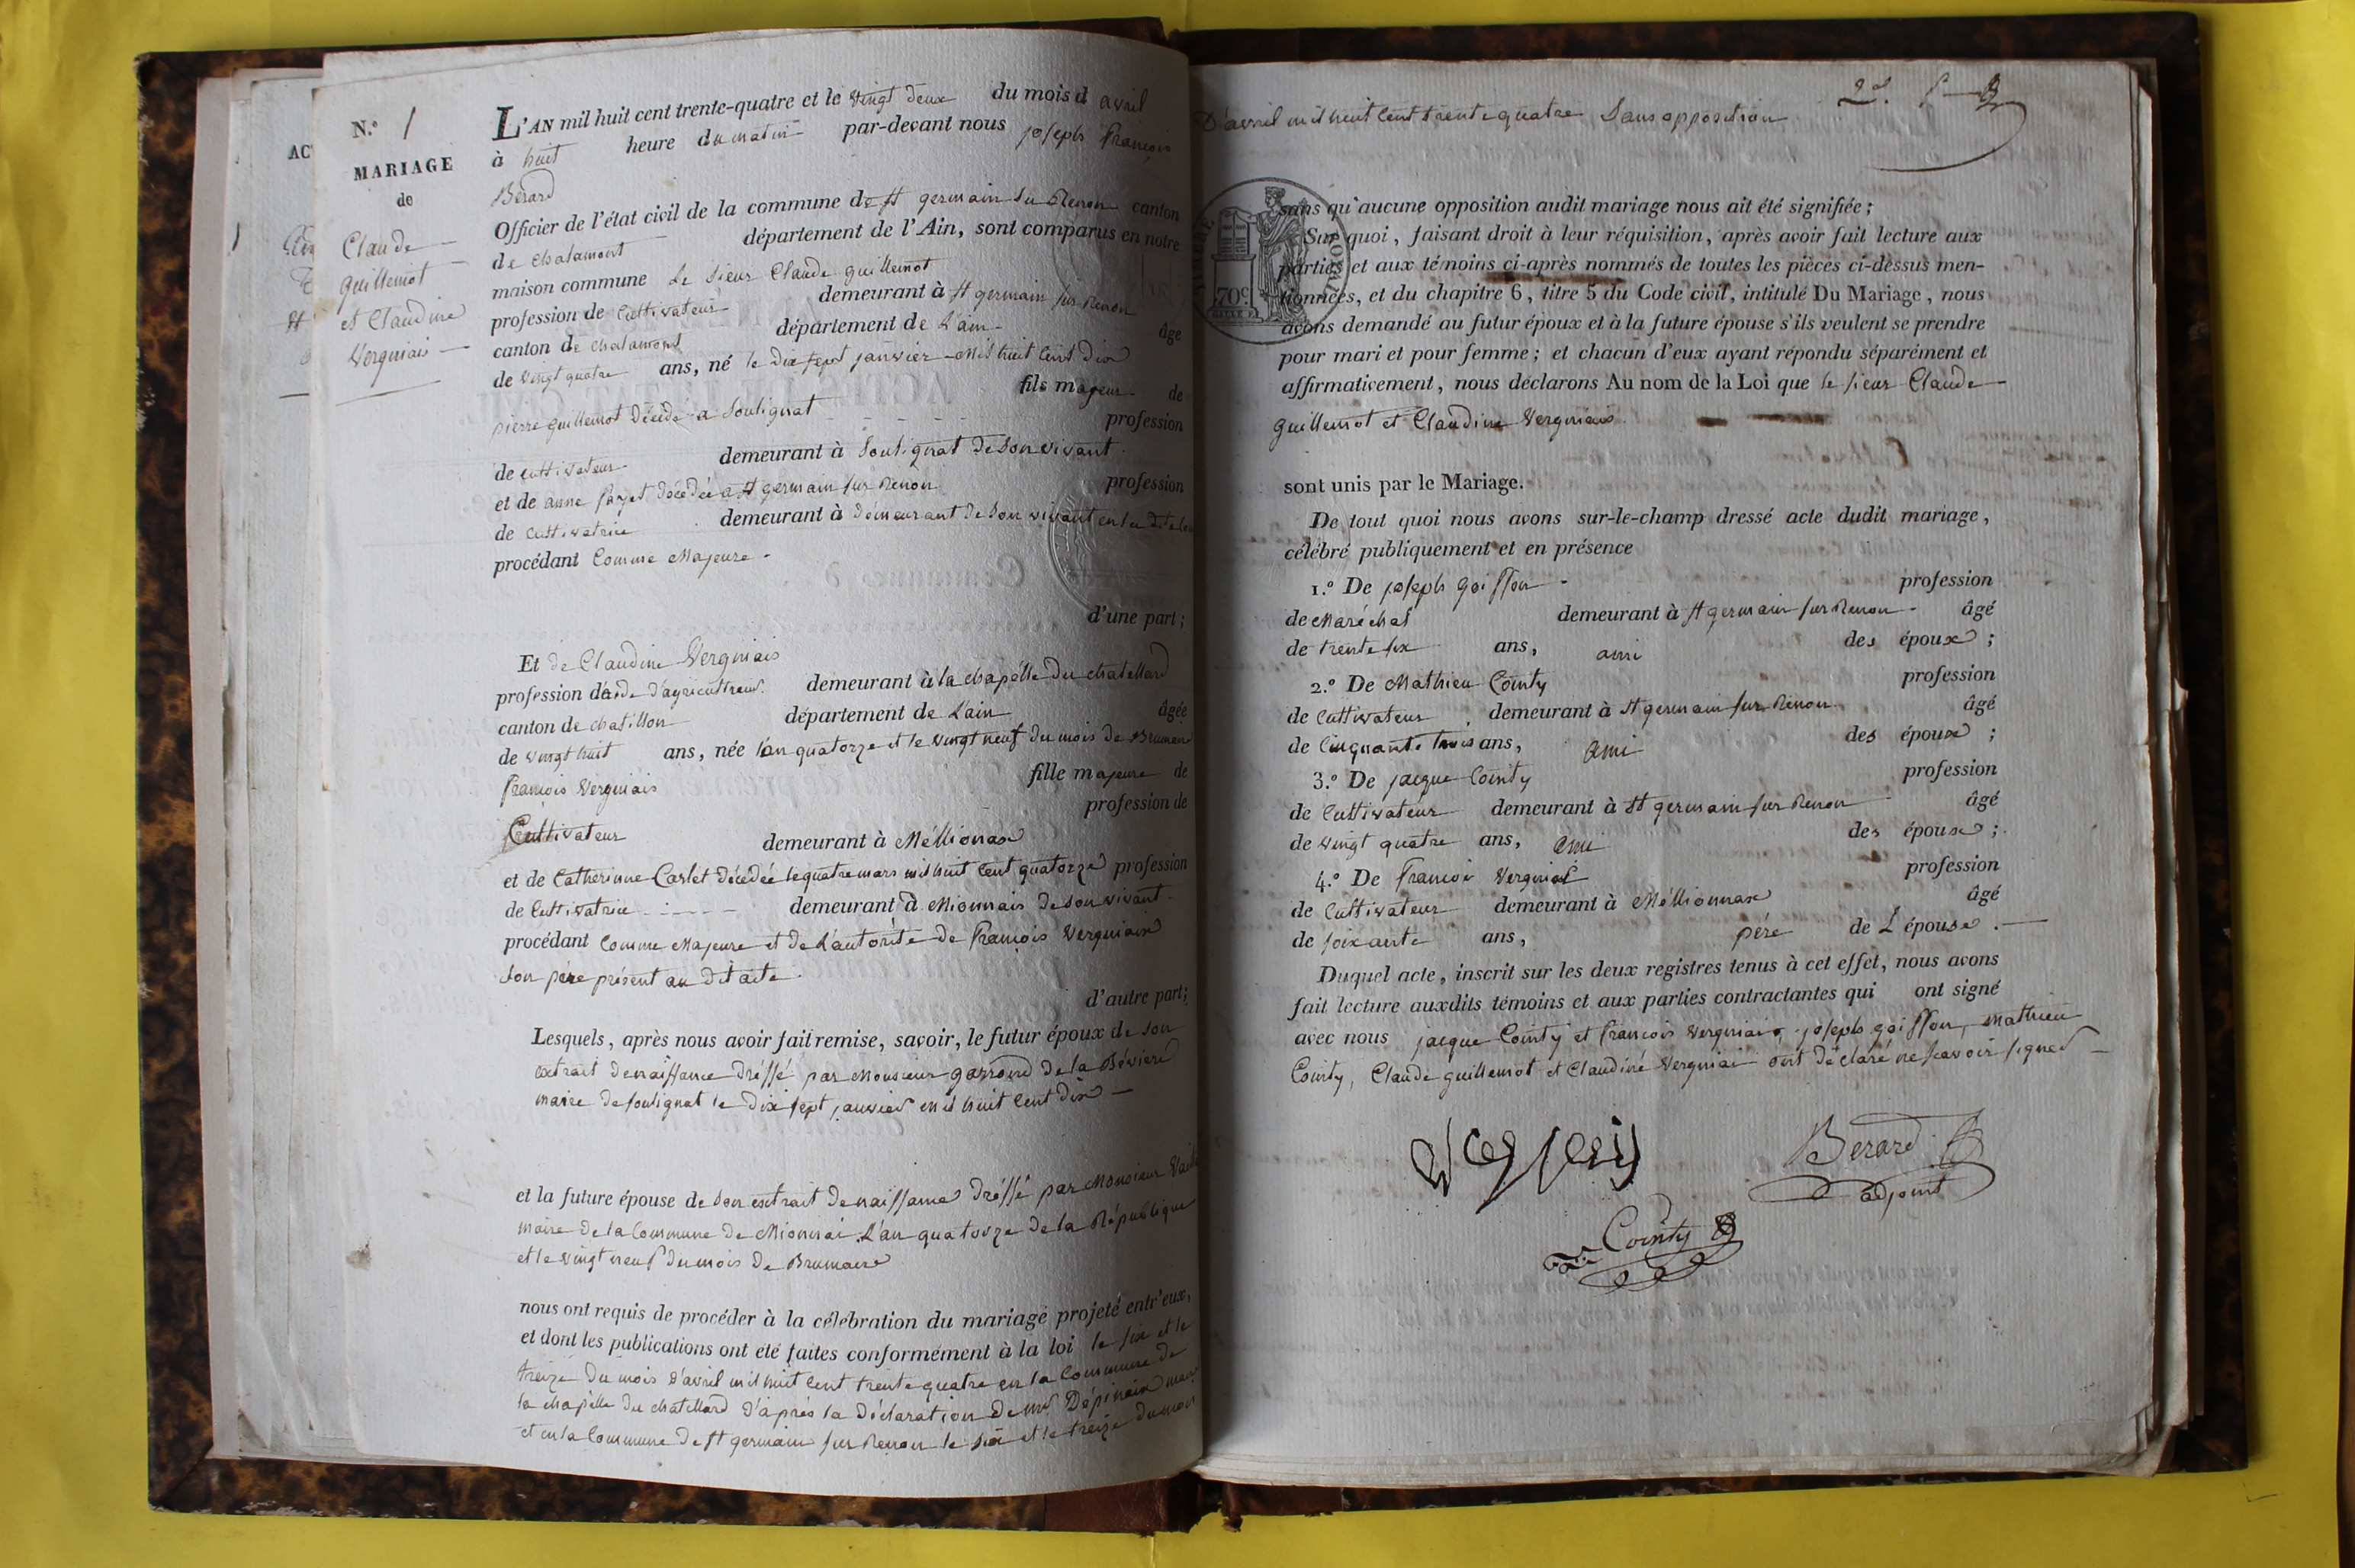 N.º 1
MARIAGE
de
Claude
guillemot
et Claudine
Vergniais
L'AN mil huit cent trente-quatre et le vingt deux du mois d avril
à huit heure du matin par-devant nous joseph françois
Bérard
Officier de l'état civil de la commune de St germain su Renon canton
de chalamont département de l'Ain, sont comparus en notre
maison commune Le sieur Claude guillemot
profession de Cultivateur demeurant à St germain sur Renon
canton de chalamont département de L'ain âgé
de vingt quatre ans, né le dix sept janvier mil huit cent dix
fils majeur de
pierre guillemot décédé a Soulignat profession
de cultivateur demeurant à Soulignat de son vivant
et de anne décédée a St germain sur Renon profession
de cultivatrice demeurant à démeurant de son vivant
procédant Comme Majeure
d'une part;
Et de Claudine Vergniais
profession d'aide d'agriculteur demeurant à la chapélle du chatellard
canton de chatillon département de L'ain âgée
de vingt huit ans, née l'an quatorze et le vingt neuf du mois de Brumere
françois Vergniais fille majeure de
profession de
Cultivateur demeurant à Méllionax
et de Catherinne Carlet décédée le quatre mars mil huit cent quatorze profession
de Cultivatrice demeurant à Mionnais de son vivant
procédant Comme Majeure et de L'autorité de françois Vergniais
son père présent au dit acte.
d'autre part;
Lesquels, après nous avoir fait remise, savoir, le futur époux de son
extrait de naissance dréssé par Monsieur garrond de la Bévière
maire de soulignat le dix sept janvier mil huit cent dix
et la future épouse de son extrait de naissance dréssé par Monsieur
maire de la Commune de Mionnai L'an quatorze de la République
et le vingt neuf du mois de Brumaire
nous ont requis de procéder à la célébration du mariage projeté entr'eux,
et dont les publications ont été faites conformément à la loi le six et le
treize du mois d'avril mil huit cent trente quatre en la Commune de
la chapélle du chatellard d'après la déclaration de mr Dépinaix
et en la Commune de St germain sur Renon le six et le treize du mois
2d.
D'avril mil huit cent trente quatre sans opposition
sans qu'aucune opposition audit mariage nous ait été signifiée;
Sur quoi, faisant droit à leur réquisition, après avoir fait lecture aux
parties et aux témoins ci-après nommés de toutes les pièces ci-dessus men-
tionnées, et du chapitre 6, titre 5 du Code civil, intitulé Du Mariage, nous
avons demandé au futur époux et à la future épouse s'ils veulent se prendre
pour mari et pour femme; et chacun d'eux ayant répondu séparément et
affirmativement, nous déclarons Au nom de la Loi que le sieur Claude
guillemot et Claudine Vergniais
sont unis par le Mariage.
De tout quoi nous avons sur-le-champ dressé acte dudit mariage,
célébré publiquement et en présence
1.º De joseph goiffon profession
de Maréchal demeurant à St germain sur Renon âgé
de trente six ans, ami des époux;
2.º De Mathieu Cointy profession
de Cultivateur demeurant à St germain sur Renon âgé
de Cinquante trois ans, ami des époux;
3.º De jacque Cointy profession
de Cultivateur demeurant à St germain sur Renon âgé
de vingt quatre ans, ami des époux;
4.º De françois Vergniais profession
de Cultivateur demeurant à Méllionnax âgé
de soixante ans, père de L'épouse.
Duquel acte, inscrit sur les deux registres tenus à cet effet, nous avons
fait lecture auxdits témoins et aux parties contractantes qui ont signé
avec nous jacque Cointy et françois Vergniais, joseph goiffon, Mathieu
Cointy, Claude guillemot et Claudine Vergniai ont déclaré ne scavoir signer
Berard
adjoint
Cointy
70c